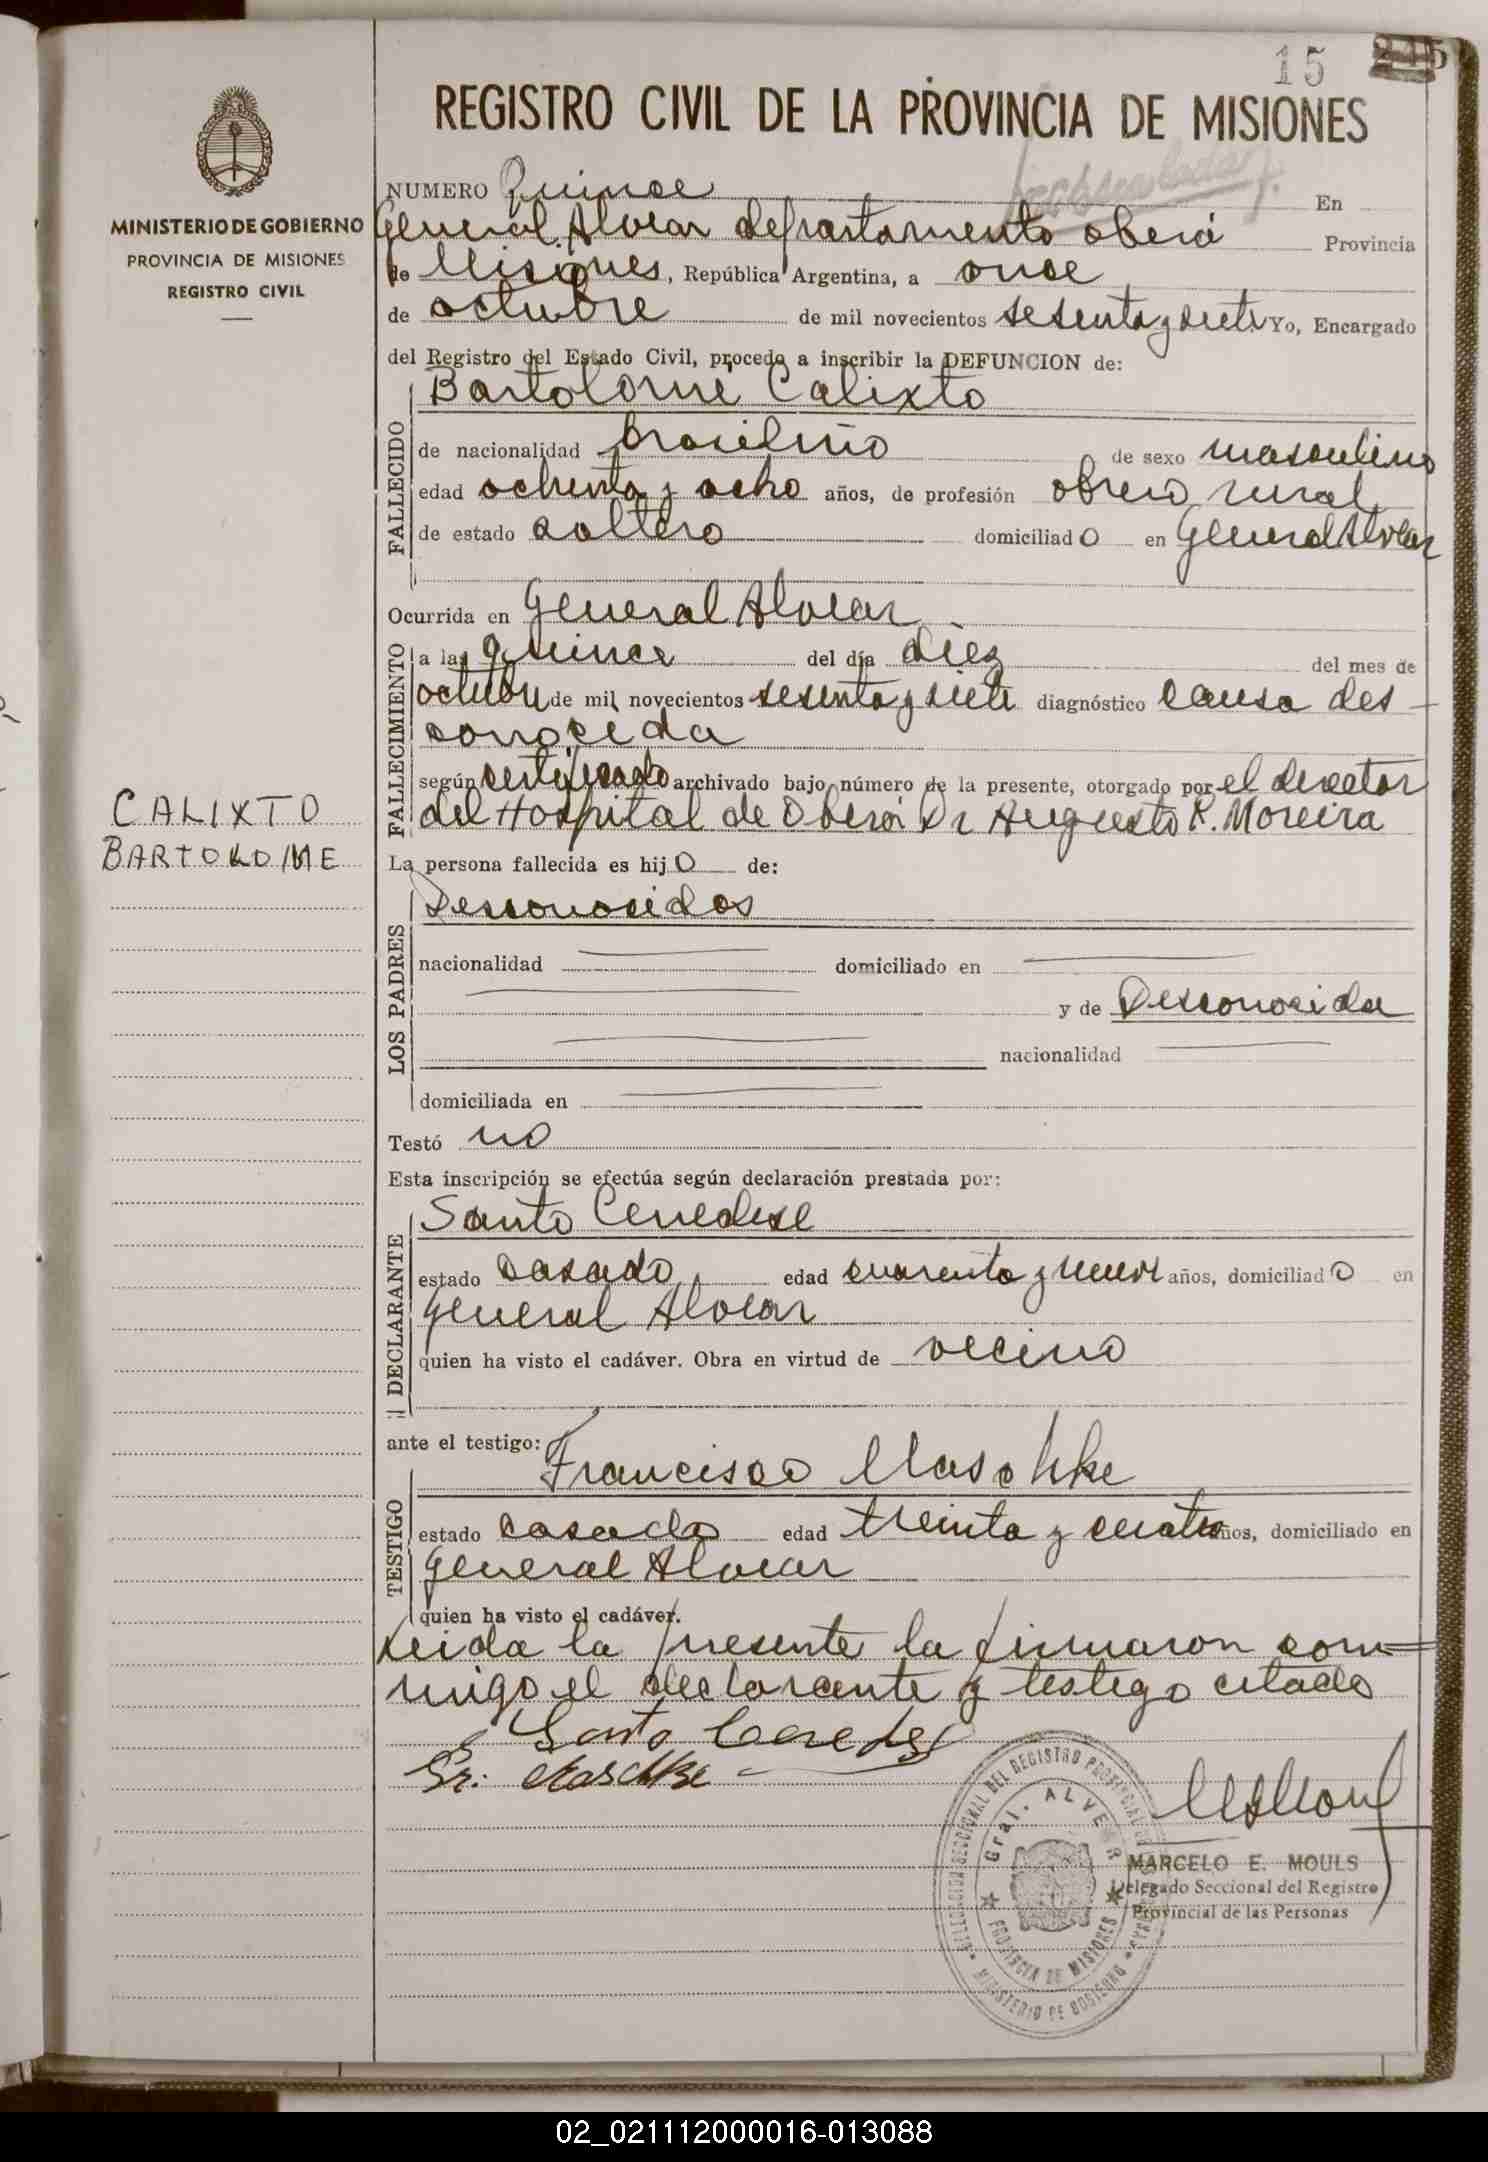 15
REGISTRO CIVIL DE LA PROVINCIA DE MISIONES
MINISTERIO DE GOBIERNO
PROVINCIA DE MISIONES
REGISTRO CIVIL
NUMERO Quince En
General Alvear departamento oberá Provincia
de Misiones, República Argentina, a once
de octubre de mil novecientos sesenta y siete Yo, Encargado
del Registro del Estado Civil, procedo a inscribir la DEFUNCION de:
Bartolome Calixto
FALLECIDO
de nacionalidad brasileño de sexo masculino
edad ochenta y ocho años, de profesión obrero rural
de estado soltero domiciliado en General Alvear
Ocurrida en General Alvear
FALLECIMIENTO
a las quince del día diez del mes de
octubre de mil novecientos sesenta y siete diagnóstico causa des-
conocida
según certificado archivado bajo número de la presente, otorgado por el director
del Hospital de Oberá Dr Augusto R. Moreira
CALIXTO
BARTOLOME
La persona fallecida es hijo de:
LOS PADRES
Desconocidos
nacionalidad domiciliado en
y de Desconocida
nacionalidad
domiciliada en
Testó no
Esta inscripción se efectúa según declaración prestada por:
DECLARANTE
Santo Cenedese
estado casado edad cuarenta y nueve años, domiciliado en
General Alvear
quien ha visto el cadáver. Obra en virtud de vecino
ante el testigo:
Francisco Maschke
TESTIGO
estado casado edad treinta y cuatro años, domiciliado en
General Alvear
quien ha visto el cadáver.
Leida la presente la firmaron con=
migo el declarante y testigo citado
Santo Cenedese
Fr. Maschke
DELEGACION SECCIONAL DEL REGISTRO PROVINCIAL DE LAS PERSONAS
Gral. ALVEAR
PROVINCIA DE MISIONES
MINISTERIO DE GOBIERNO
MARCELO E. MOULS
Delegado Seccional del Registro
Provincial de las Personas
02_021112000016-013088